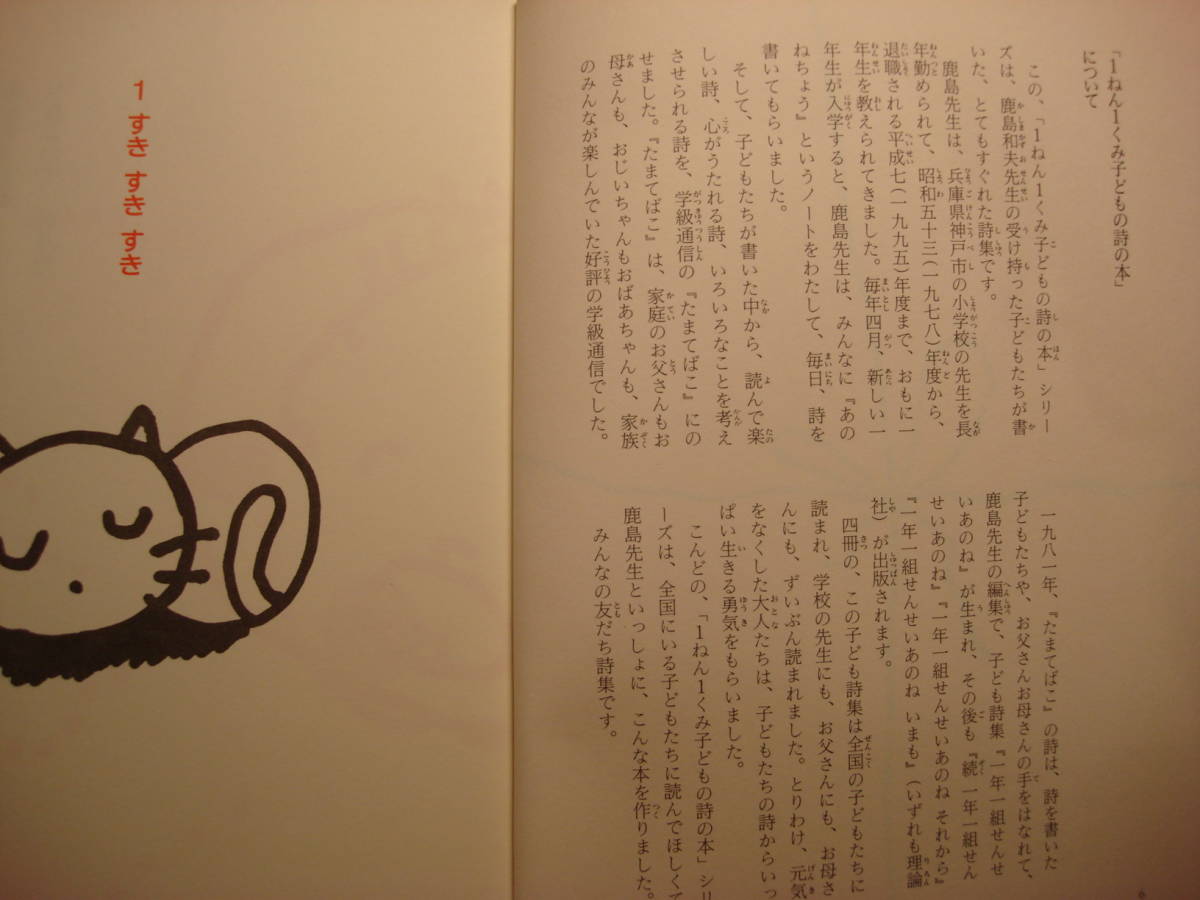 「1ねん1くみ子どもの詩の本」
について
この、「1ねん1くみ子どもの詩の本」シリー
ズは、鹿島和夫先生の受け持った子どもたちが書
いた、とてもすぐれた詩集です。
鹿島先生は、兵庫県神戸市の小学校の先生を長
年勤められて、昭和五十三(一九七八)年度から、
退職される平成七(一九九五)年度まで、おもに一
年生を教えられてきました。毎年四月、新しい一
年生が入学すると、鹿島先生は、みんなに『あの
ねちょう』というノートをわたして、毎日、詩を
書いてもらいました。
そして、子どもたちが書いた中から、読んで楽
しい詩、心がうたれる詩、いろいろなことを考え
させられる詩を、学級通信の『たまてばこ』にの
せました。『たまてばこ』は、家庭のお父さんもお
母さんも、おじいちゃんもおばあちゃんも、家族
のみんなが楽しんでいた好評の学級通信でした。
一九八一年、『たまてばこ』の詩は、詩を書いた
子どもたちや、お父さんお母さんの手をはなれて、
鹿島先生の編集で、子ども詩集『一年一組せんせ
いあのね』が生まれ、その後も『続一年一組せん
せいあのね』『一年一組せんせいあのね それから』
『一年一組せんせいあのね いまも』(いずれも理論
社)が出版されます。
四冊の、この子ども詩集は全国の子どもたちに
読まれ、学校の先生にも、お父さんにも、お母さ
んにも、ずいぶん読まれました。とりわけ、元気
をなくした大人たちは、子どもたちの詩からいっ
ぱい生きる勇気をもらいました。
こんどの、「1ねん1くみ子どもの詩の本」シリ
ーズは、全国にいる子どもたちに読んでほしくて
鹿島先生といっしょに、こんな本を作りました。
みんなの友だち詩集です。
6
1 すき すき すき